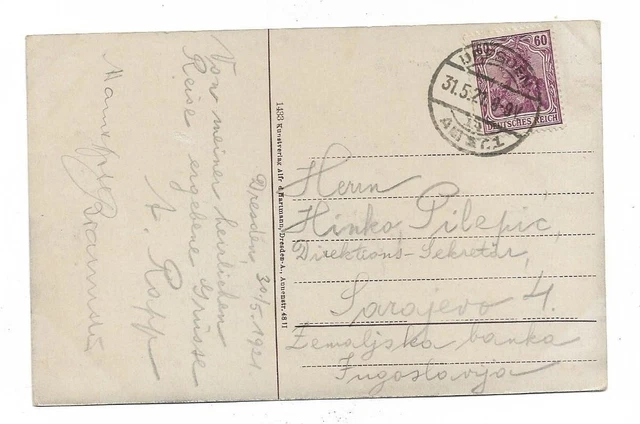 Dresden, 30/5.1921
Von meiner herrlichen
Reise ergebene Grüsse
A. Rapp
1433 Kunstverlag Alfr. Hartmann, Dresden-A., Annenstr. 48 II
60
DEUTSCHES REICH
DRESDEN
31.5.21
ALTST. 1
Herrn
Hinko Pilepic,
Direktions-Sekretär,
Sarajevo 4.
Zemaljska banka
Jugoslavija